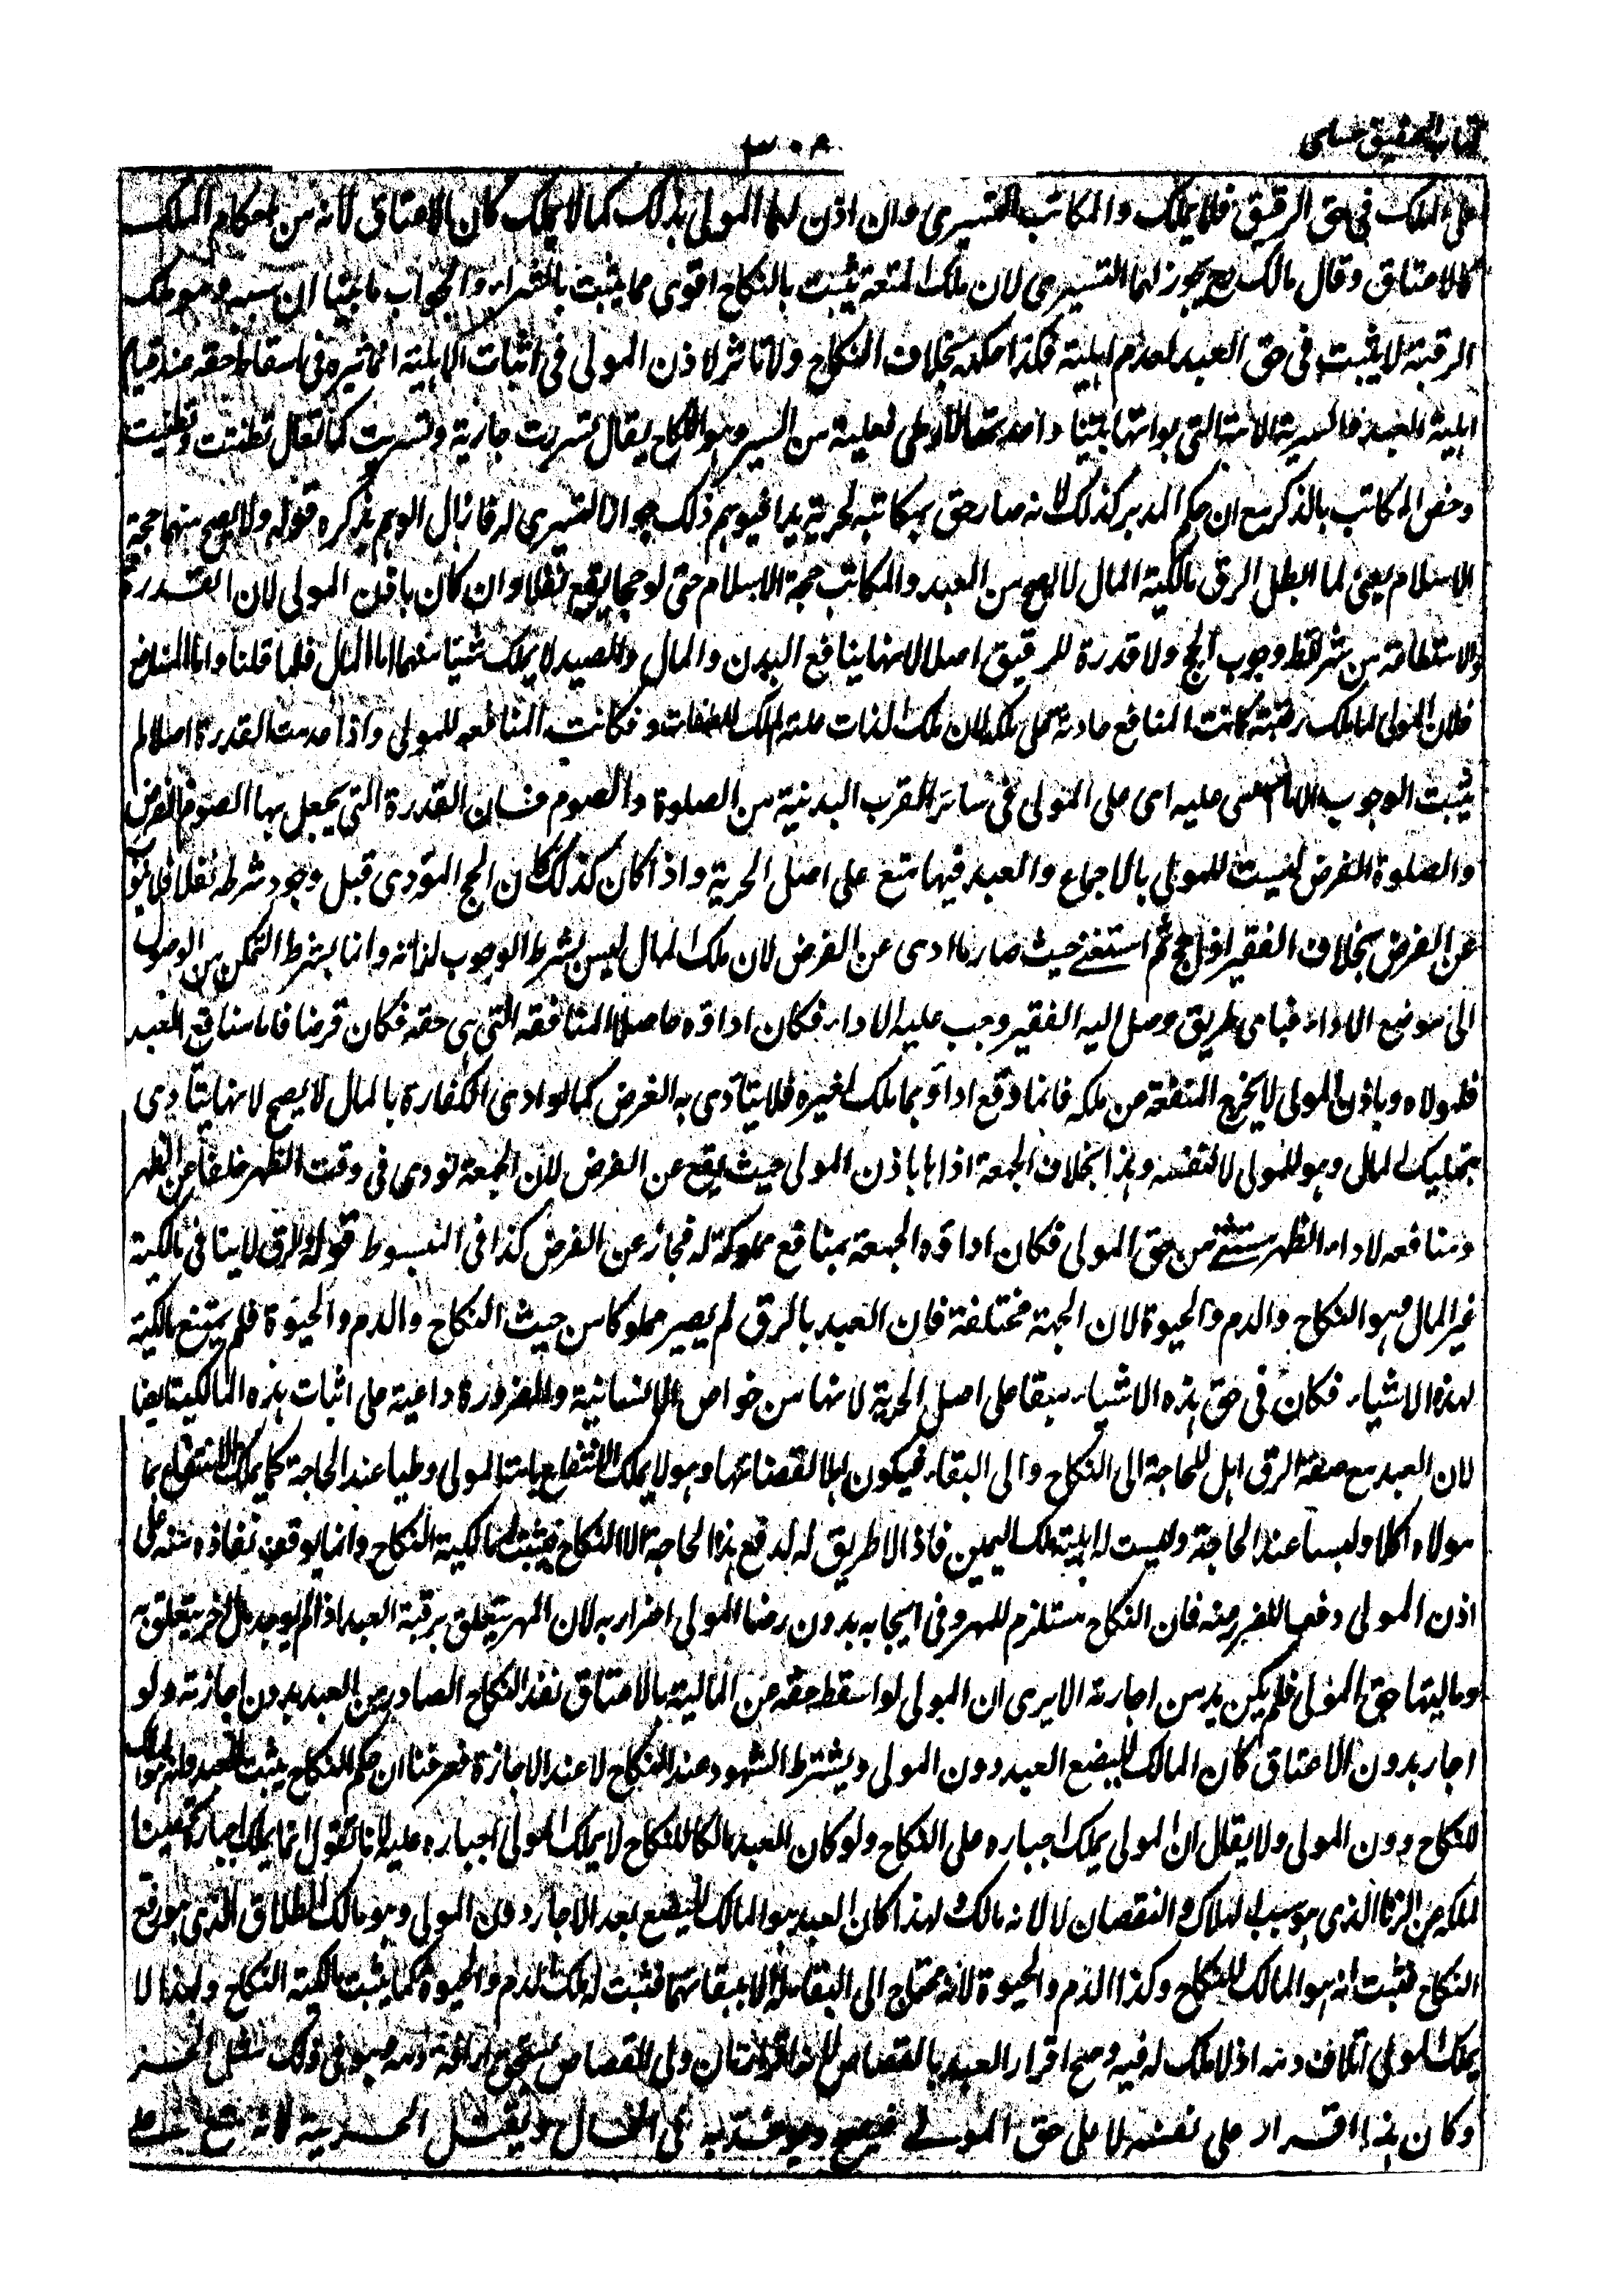 كتاب التحقيق حسامى
٣٠٨
على الملك فى حق الرقيق فلا يملك والمكاتب التسرى وان اذن لهما المولى بذلك كما لا يملك كان بالاعتاق لانه من احكام الملك
كالاعتاق وقال مالك رح يجوز لهما التسرى لان ملك المتعة يثبت بالنكاح اقوى مما يثبت بالشراء والجواب ما بينا ان سببه وهو ملك
الرقبة لا يثبت فى حق العبد لعدم اهلية فكذا حكمه بخلاف النكاح ولا تاثير لاذن المولى فى اثبات الاهلية انما تاثيره فى اسقاط حقه عند قيام
اهلية العبد فالسرية الامة التى بواتها بيتا واحدة السرارى على فعلية من السر وهو النكاح يقال تسررت جارية وتسريت كما يقال تظننت وتظنيت
وخص المكاتب بالذكر مع ان حكم المدبر كذلك لانه صار احق بمكاسبه لحرية يدا فيوهم ذلك جواز التسرى له فازال الوهم بذكره قوله ولا يصح منهما حجة
الاسلام يعنى لما ابطل الرق مالكية المال لا يصح من العبد والمكاتب حجة الاسلام حتى لو حجا يقع نفلا وان كان باذن المولى لان القدرة
والاستطاعة من شرائط وجوب الحج ولا قدرة للرقيق اصلا لانها بمنافع البدن والمال والعبد لا يملك شيئا منهما اما المال فلما قلنا واما المنافع
فلان المولى لما ملك رقبته كانت المنافع حادثة على ملكه لان ملك الذات علة لملك الصفات وفكانت المنافع للمولى واذا عدمت القدرة اصلا لم
يثبت الوجوب الا ما استثنى عليه اى على المولى فى سائر القرب البدنية من الصلوة والصوم فان القدرة التى يحصل بها الصوم الفرض
والصلوة الفرض ليست للمولى بالاجماع والعبد فيها متع على اصل الحرية واذا كان كذلك كان الحج المؤدى قبل وجود شرطه نفلا فلا ينوب
عن الفرض بخلاف الفقير اذا حج ثم استغنى حيث صار ما ادى عن الفرض لان ملك المال ليس بشرط الوجوب لذاته وانما يشترط التمكن من الوصول
الى موضع الاداء فباى طريق وصل اليه الفقير وجب عليه الاداء فكان اداؤه حاصلا بمنافعه التى هى حقه فكان فرضا فاما منافع العبد
فلمولاه وباذن المولى لا يخرج المنفعة من ملكه فانما وقع اداؤ بما ملك لغيره فلا يتادى به الفرض كما لو ادى الكفارة بالمال لا يصح لانها يتادى
بتمليك المال وهو للمولى لا لنفسه وهذا بخلاف الجمعة اذا ادها باذن المولى حيث يقع عن الفرض لان الجمعة تودى فى وقت الظهر خلفا عن الظهر
ومنافعه لاداء الظهر مستثنى من حق المولى فكان اداؤه الجمعة بمنافع مملوكة له فجاز عن الفرض كذا فى المبسوط قوله والرق لا ينافى مالكية
غير المال وهو النكاح والدم والحيوة لان الجهة مختلفة فان العبد بالرق لم يصير مملوكا من حيث النكاح والدم والحيوة فلم يمتنع مالكية
لهذه الاشياء فكان فى حق هذه الاشياء مبقا على اصل الحرية لانها من خواص الانسانية والضرورة داعية على اثبات هذه المالكية ايضا
لان العبد مع صفة الرق اهل للحاجة الى النكاح والى البقاء فيكون اهلا لقضائها وهو لا يملك الانتفاع بامة المولى وطيا عند الحاجة كما يملك الانتفاع بما
مولاه اكلا ولبسا عند الحاجة وليست له اهلية ملك اليمين فاذا لا طريق له لدفع هذا الحاجة الا النكاح فيثبت له مالكية النكاح وانما يوقف نفاذه منه على
اذن المولى دفعا للضرر عنه فان النكاح مستلزم للمهر وفى ايجابه بدون رضا المولى اضرار به لان المهر يتعلق برقبة العبد اذا لم يوجد مال اخر يتعلق به
وماليتها حق المولى فلم يكن بد من اجازته الا يرى ان المولى لو اسقط حقه عن المالية بالاعتاق نفذ النكاح الصادر من العبد بدون اجازته ولو
اجاز بدون الاعتاق كان المالك للبضع العبد دون المولى ويشترط الشهود عند النكاح لا عند الاجازة فعرفنا ان حكم النكاح يثبت للعبد وانه هو المالك
للنكاح دون المولى ولا يقال ان المولى يملك اجباره على النكاح ولو كان العبد مالكا للنكاح لا يملك المولى اجباره عليه لانا نقول انما يملك اجباره تحصينا
لملكه عن الزنا الذى هو سبب الهلاك والنقصان لا لانه مالك لهذا كان العبد هو المالك للبضع بعد الاجازة دون المولى وهو مالك الطلاق الذى هو رفع
النكاح فثبت انه هو المالك للنكاح وكذا الدم والحيوة لانه محتاج الى البقاء ولا بقاء له الا ببقائهما فثبت له ملك الدم والحيوة كما يثبت مالكية النكاح ولهذا لا
يملك المولى اتلاف دمه اذ لا ملك له فيه وصح اقرار العبد بالقصاص لان ولى القصاص يستحق اراقة دمه وهو فى ذلك مثل الحر
وكان هذا اقرار على نفسه لا على حق المولى فيصح ويؤخذ به فى الحال ويقتل الحر به لانه مبقى على